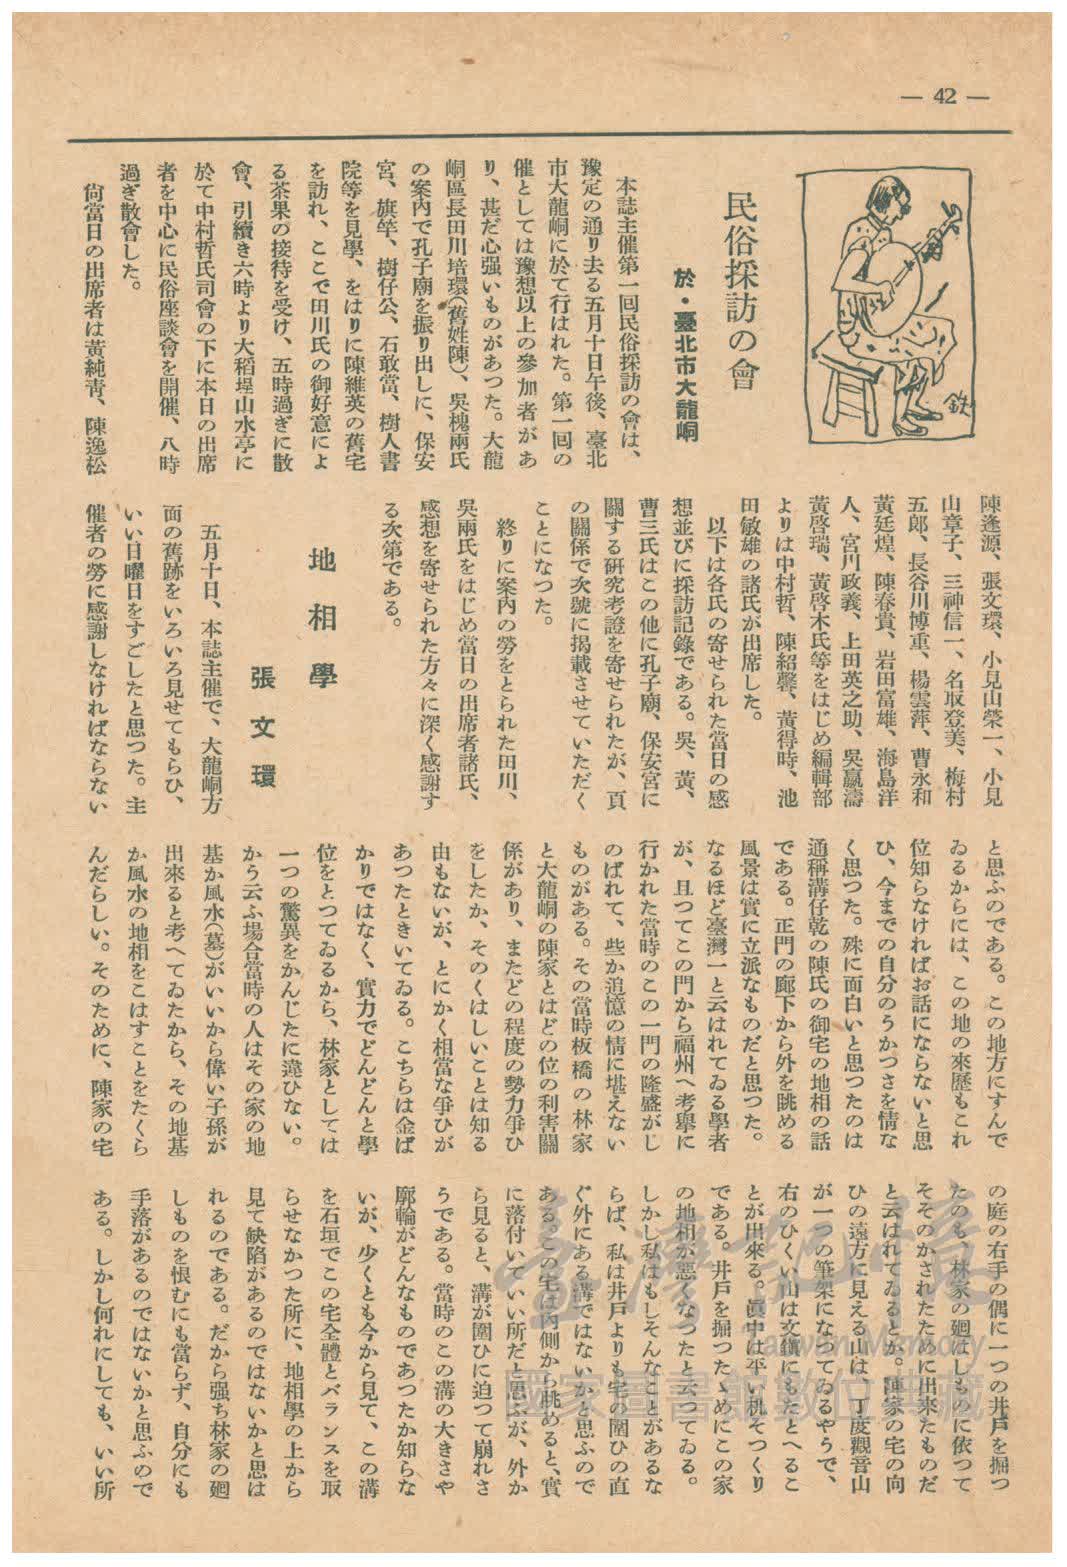 — 42 —
鉄
民俗採訪の會
於・臺北市大龍峒
本誌主催第一回民俗採訪の會は、
豫定の通り去る五月十日午後、臺北
市大龍峒に於て行はれた。第一回の
催としては豫想以上の參加者があ
り、甚だ心强いものがあつた。大龍
峒區長田川培環(舊姓陳)、吳槐兩氏
の案内で孔子廟を振り出しに、保安
宮、旗竿、樹仔公、石敢當、樹人書
院等を見學、をはりに陳維英の舊宅
を訪れ、ここで田川氏の御好意によ
る茶果の接待を受け、五時過ぎに散
會、引續き六時より大稻埕山水亭に
於て中村哲氏司會の下に本日の出席
者を中心に民俗座談會を開催、八時
過ぎ散會した。
尙當日の出席者は黃純靑、陳逸松
陳逢源、張文環、小見山榮一、小見
山章子、三神信一、名取登美、梅村
五郎、長谷川博重、楊雲萍、曹永和
黃廷煌、陳春貴、岩田富雄、海島洋
人、宮川政義、上田英之助、吳嬴濤
黃啓瑞、黃啓木氏等をはじめ編輯部
よりは中村哲、陳紹馨、黃得時、池
田敏雄の諸氏が出席した。
以下は各氏の寄せられた當日の感
想並びに採訪記錄である。吳、黃、
曹三氏はこの他に孔子廟、保安宮に
關する研究考證を寄せられたが、頁
の關係で次號に揭載させていただく
ことになつた。
終りに案内の勞をとられた田川、
吳兩氏をはじめ當日の出席者諸氏、
感想を寄せられた方々に深く感謝す
る次第である。
地相學
張文環
五月十日、本誌主催で、大龍峒方
面の舊跡をいろいろ見せてもらひ、
いい日曜日をすごしたと思つた。主
催者の勞に感謝しなければならない
と思ふのである。この地方にすんで
ゐるからには、この地の來歷もこれ
位知らなければお話にならないと思
ひ、今までの自分のうかつさを情な
く思つた。殊に面白いと思つたのは
通稱溝仔乾の陳氏の御宅の地相の話
である。正門の廊下から外を眺める
風景は實に立派なものだと思つた。
なるほど臺灣一と云はれてゐる學者
が、且つてこの門から福州へ考擧に
行かれた當時のこの一門の隆盛がし
のばれて、些か追憶の情に堪えない
ものがある。その當時板橋の林家
と大龍峒の陳家とはどの位の利害關
係があり、またどの程度の勢力爭ひ
をしたか、そのくはしいことは知る
由もないが、とにかく相當な爭ひが
あつたときいてゐる。こちらは金ば
かりではなく、實力でどんどんと學
位をとつてゐるから、林家としては
一つの驚異をかんじたに違ひない。
かう云ふ場合當時の人はその家の地
基か風水(墓)がいいから偉い子孫が
出來ると考へてゐたから、その地基
か風水の地相をこはすことをたくら
んだらしい。そのために、陳家の宅
の庭の右手の偶に一つの井戶を掘つ
たのも、林家の廻はしものに依つて
そそのかされたために出來たものだ
と云はれてゐるとか。陳家の宅の向
ひの遠方に見える山は、丁度觀音山
が一つの筆架になつてゐるやうで、
右のひくい山は文鎭にもたとへるこ
とが出來る。眞中は平い机そつくり
である。井戶を掘つたゝめにこの家
の地相が惡くなつたと云つてゐる。
しかし私はもしそんなことがあるな
らば、私は井戶よりも宅の圍ひの直
ぐ外にある溝ではないかと思ふので
ある。この宅は内側から眺めると、實
に落付いていい所だと思ふが、外か
ら見ると、溝が圍ひに迫つて崩れさ
うである。當時のこの溝の大きさや
廓輪がどんなものであつたか知らな
いが、少くとも今から見て、この溝
を石垣でこの宅全體とバランスを取
らせなかつた所に、地相學の上から
見て缺陷があるのではないかと思は
れるのである。だから强ち林家の廻
しものを恨むにも當らず、自分にも
手落があるのではないかと思ふので
ある。しかし何れにしても、いい所
臺灣記憶
Taiwan Memory
國家圖書館數位典藏